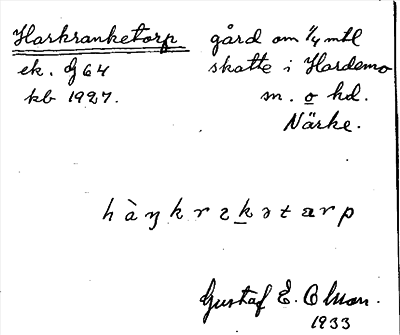 Harkranketorp gård om 1/4 mtl
ek. G 64 skatte i Hardemo
kb 1927. sn. o hd.
Närke.
hàŋkrɛkətarp
Gustaf E. Olsson.
1933